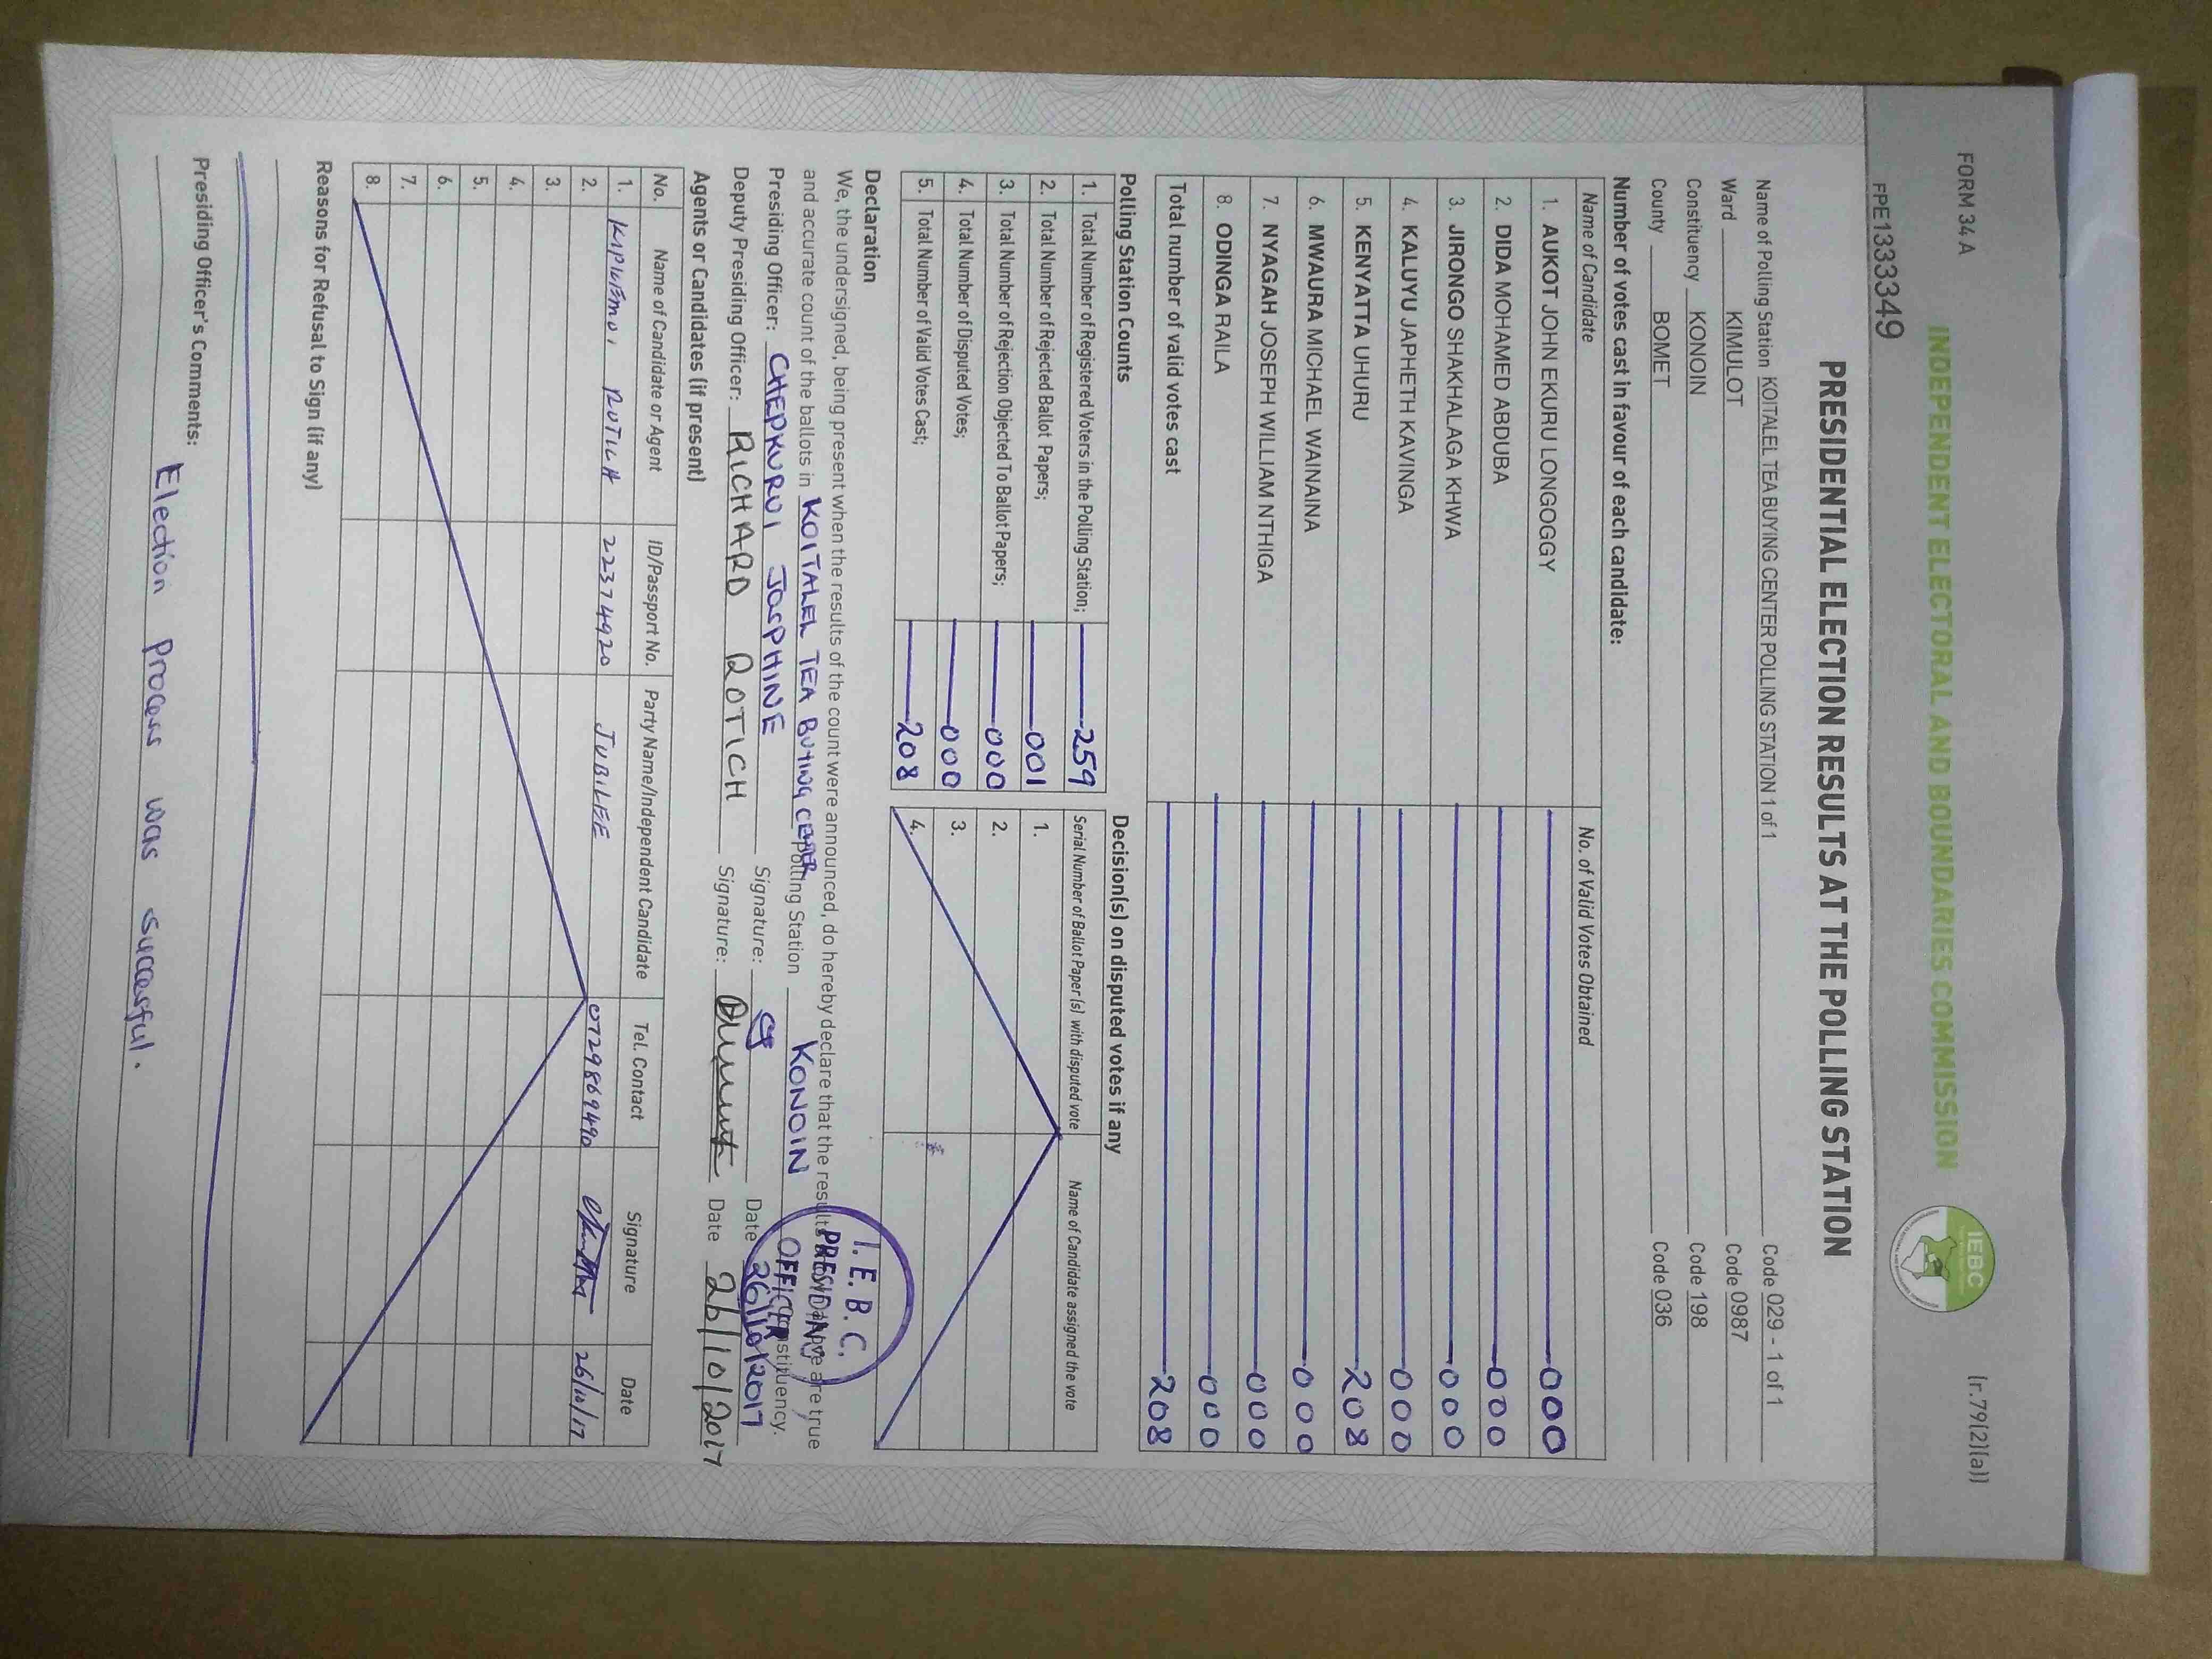 FORM 34 A
(r.79(2)(a))
INDEPENDENT ELECTORAL AND BOUNDARIES COMMISSION
IEBC
FPE1333349
PRESIDENTIAL ELECTION RESULTS AT THE POLLING STATION
Name of Polling Station KOITALEL TEA BUYING CENTER POLLING STATION 1 of 1 Code 029 - 1 of 1
Ward KIMULOT Code 0987
Constituency KONOIN Code 198
County BOMET Code 036
Number of votes cast in favour of each candidate:
Name of Candidate No. of Valid Votes Obtained
1. AUKOT JOHN EKURU LONGOGGY 000
2. DIDA MOHAMED ABDUBA 000
3. JIRONGO SHAKHALAGA KHWA 000
4. KALUYU JAPHETH KAVINGA 000
5. KENYATTA UHURU 208
6. MWAURA MICHAEL WAINAINA 000
7. NYAGAH JOSEPH WILLIAM NTHIGA 000
8. ODINGA RAILA 000
Total number of valid votes cast 208
Polling Station Counts
1. Total Number of Registered Voters in the Polling Station; 259
2. Total Number of Rejected Ballot Papers; 001
3. Total Number of Rejection Objected To Ballot Papers; 000
4. Total Number of Disputed Votes; 000
5. Total Number of Valid Votes Cast; 208
Decision(s) on disputed votes if any
Serial Number of Ballot Paper (s) with disputed vote Name of Candidate assigned the vote
1.
2.
3.
4.
Declaration
We, the undersigned, being present when the results of the count were announced, do hereby declare that the results above are true
and accurate count of the ballots in KOITALEL TEA BUYING CENTER Polling Station KONOIN Constituency.
Presiding Officer: CHEPKURUI JOSPHINE Signature: Date 26/10/2017
Deputy Presiding Officer: RICHARD ROTICH Signature: Date 26/10/2017
I.E.B.C.
PRESIDING
OFFICER
Agents or Candidates (if present)
No. Name of Candidate or Agent ID/Passport No. Party Name/Independent Candidate Tel. Contact Signature Date
1. KIPKIEMOI ROTICH 22374920 JUBILEE 0729869490 26/10/17
2.
3.
4.
5.
6.
7.
8.
Reasons for Refusal to Sign (if any)
Presiding Officer's Comments:
Election process was successful.